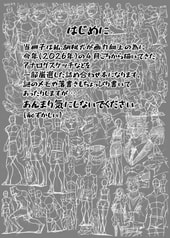 はじめに
当冊子は私、
が画力向上の為に
今年(2026年)の4月ごろから描いてきた
アナログスケッチなどを
一部厳選した詰め合わせ本になります。
謎のメモや落書きもちょっぴり書いて
あったりしますが…
あんまり気にしないでください
(恥ずかしい)